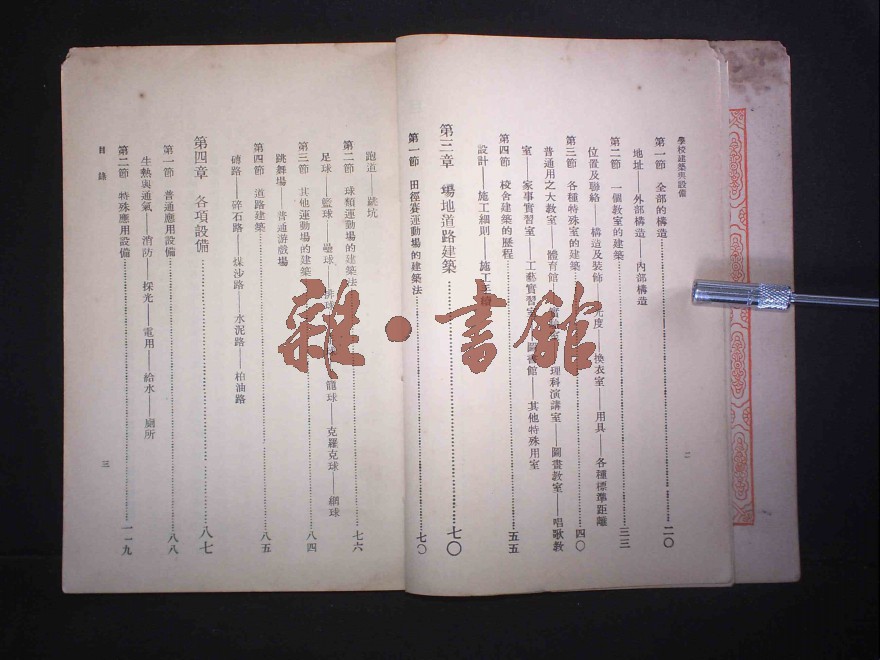 學校建築與設備
第一節 全部的構造……二〇
地址——外部構造——內部構造
第二節 一個教室的建築……三三
位置及聯絡——構造及裝飾——光度——換衣室——用具——各種標準距離
第三節 各種特殊室的建築……四〇
普通用之大教室——體育館——理科演講室——圖畫教室——唱歌教
室——家事實習室——工藝實習室——圖書館——其他特殊用室
第四節 校舍建築的歷程……五五
設計——施工細則——施工
第三章 場地道路建築……七〇
第一節 田徑賽運動場的建築法……七〇
二
跑道——跳坑
第二節 球類運動場的建築法……七六
足球——籃球——壘球——排球——籠球——克羅克球——網球
第三節 其他運動場的建築……八四
跳舞場——普通游戲場
第四節 道路建築……八五
磚路——碎石路——煤沙路——水泥路——柏油路
第四章 各項設備……八七
第一節 普通應用設備……八八
生熱與通氣——消防——採光——電用——給水——廁所
第二節 特殊應用設備……一一九
目錄
三
雜·書館